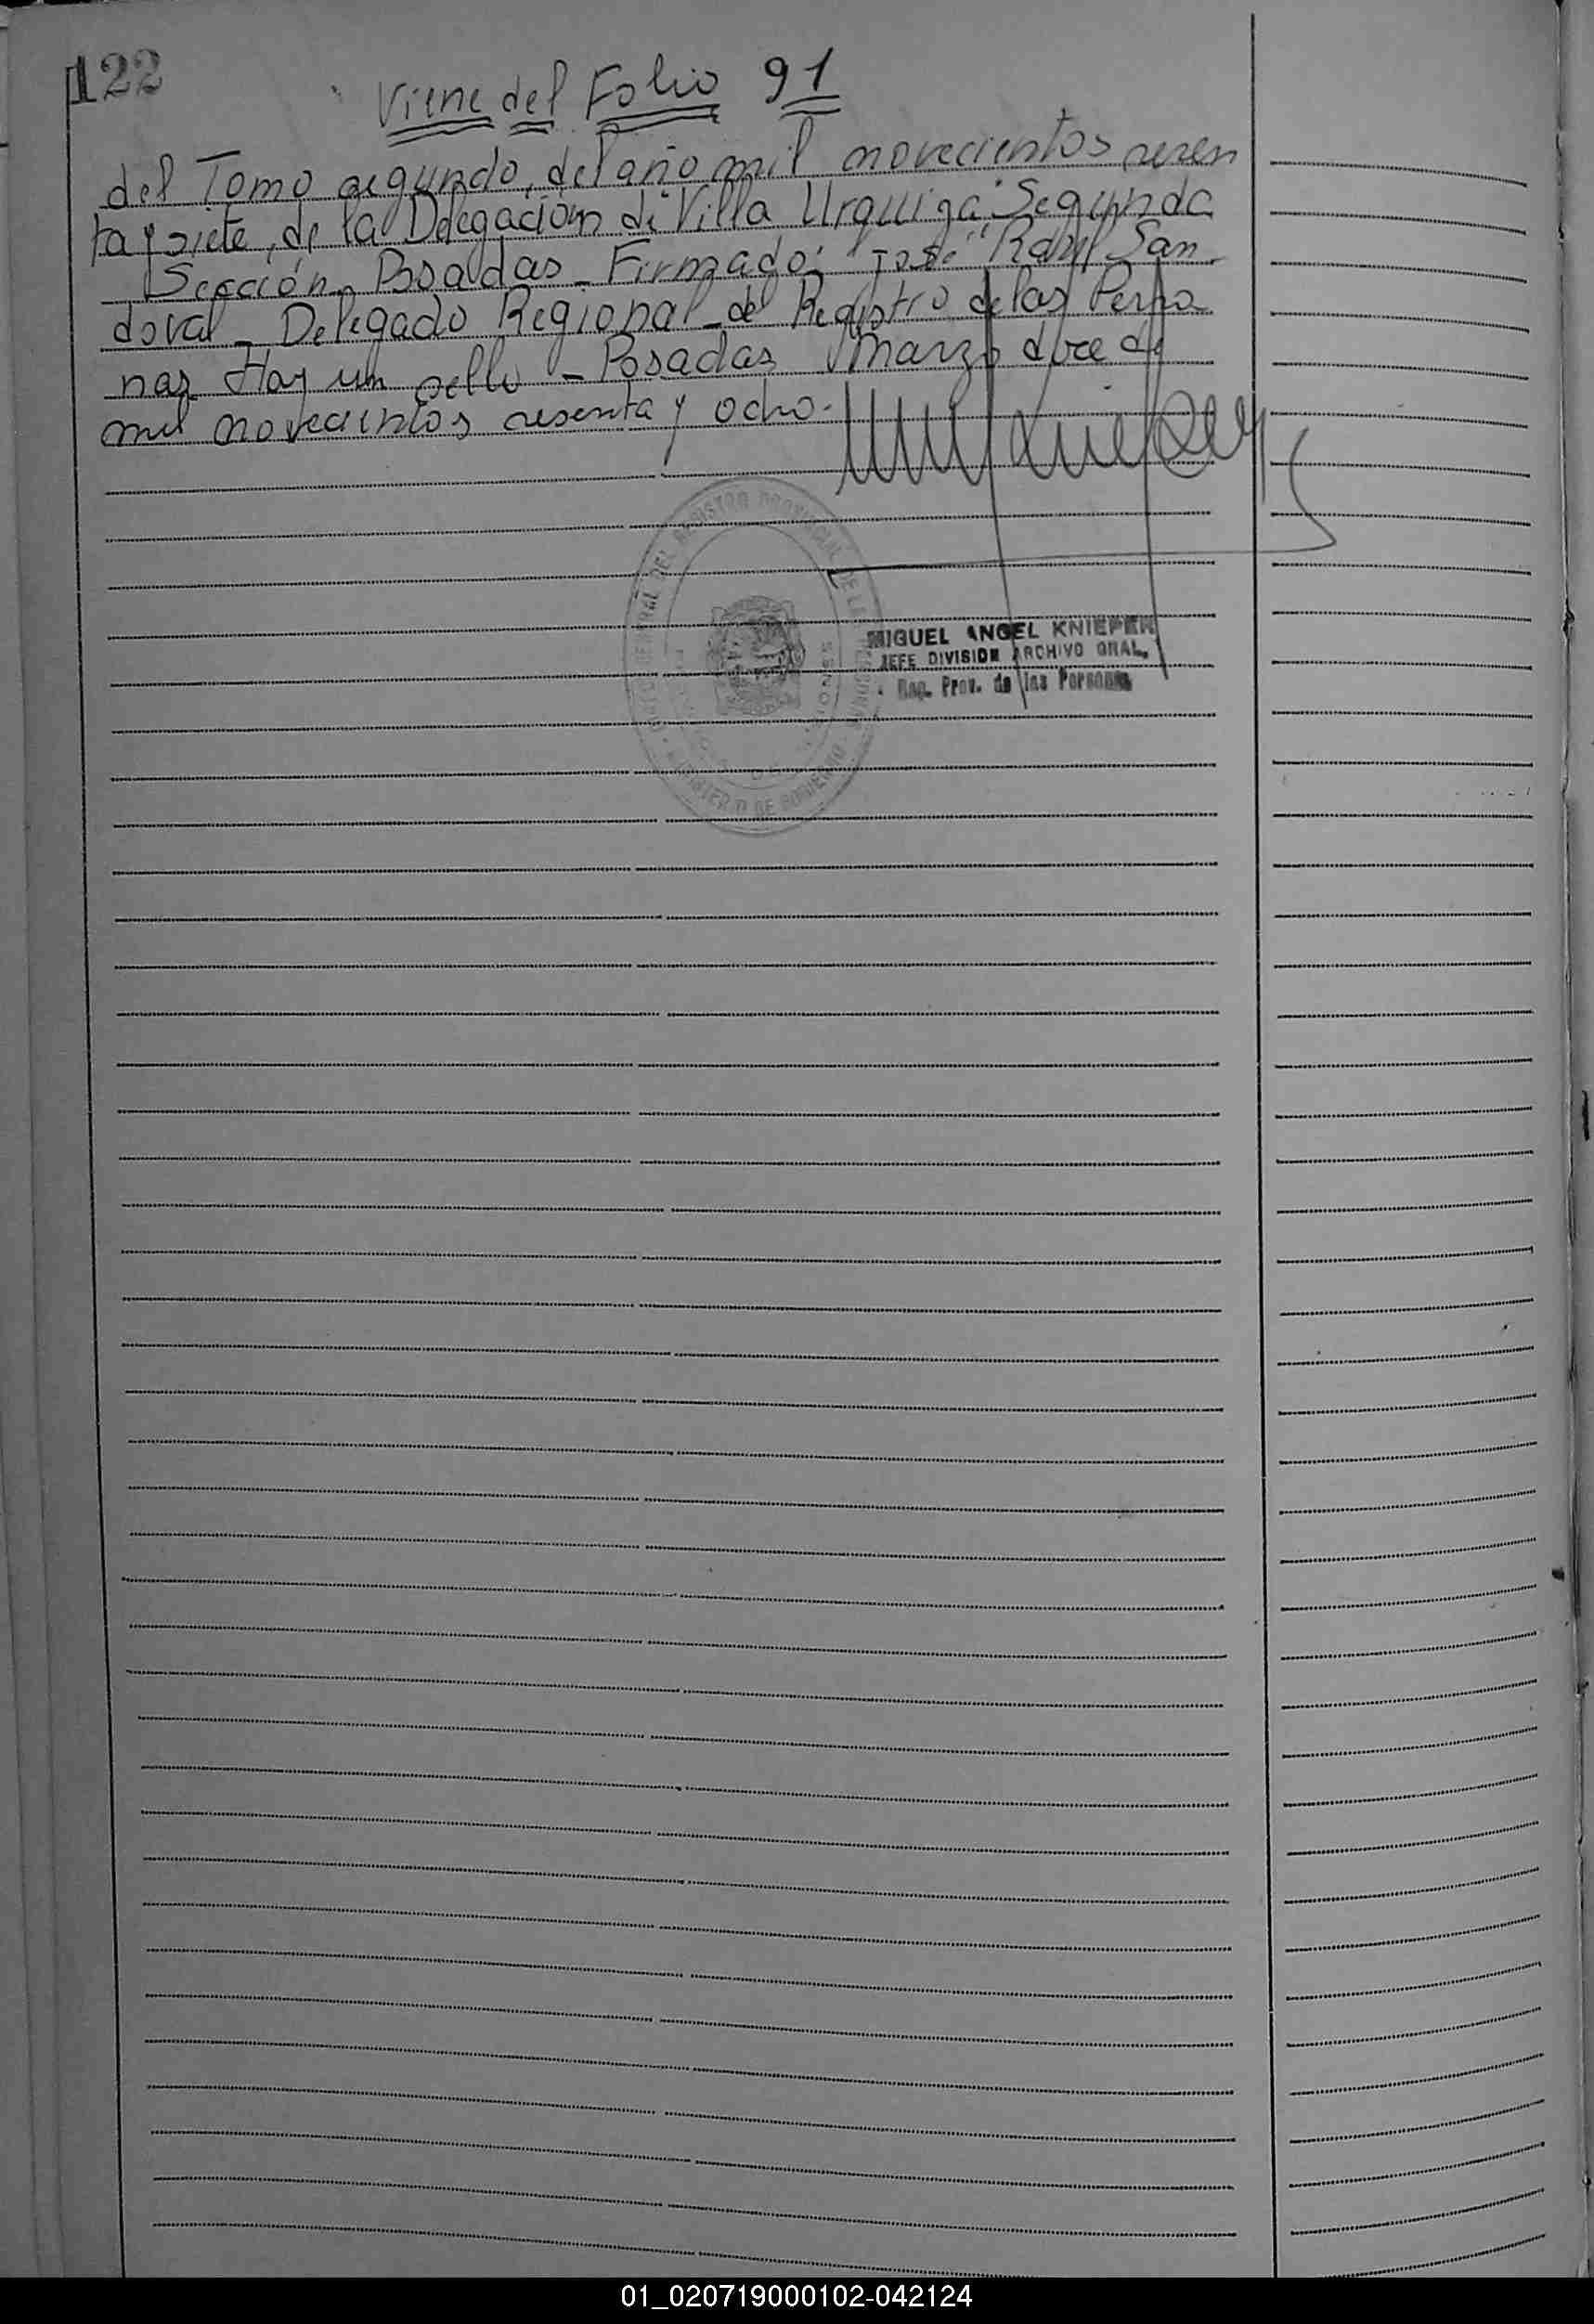 122
Viene del Folio 91
del Tomo segundo, del año mil novecientos sesen
ta y siete, de la Delegación de Villa Urquiza "Segunda
Sección Posadas - Firmado: José Raúl San-
doval - Delegado Regional - del Registro de las Perso-
nas Hay un sello - Posadas Marzo doce de
mil novecientos sesenta y ocho.-
MIGUEL ANGEL KNIEPER
JEFE DIVISION ARCHIVO GRAL.
Reg. Prov. de las Personas
MINISTERIO DE GOBIERNO
01_020719000102-042124